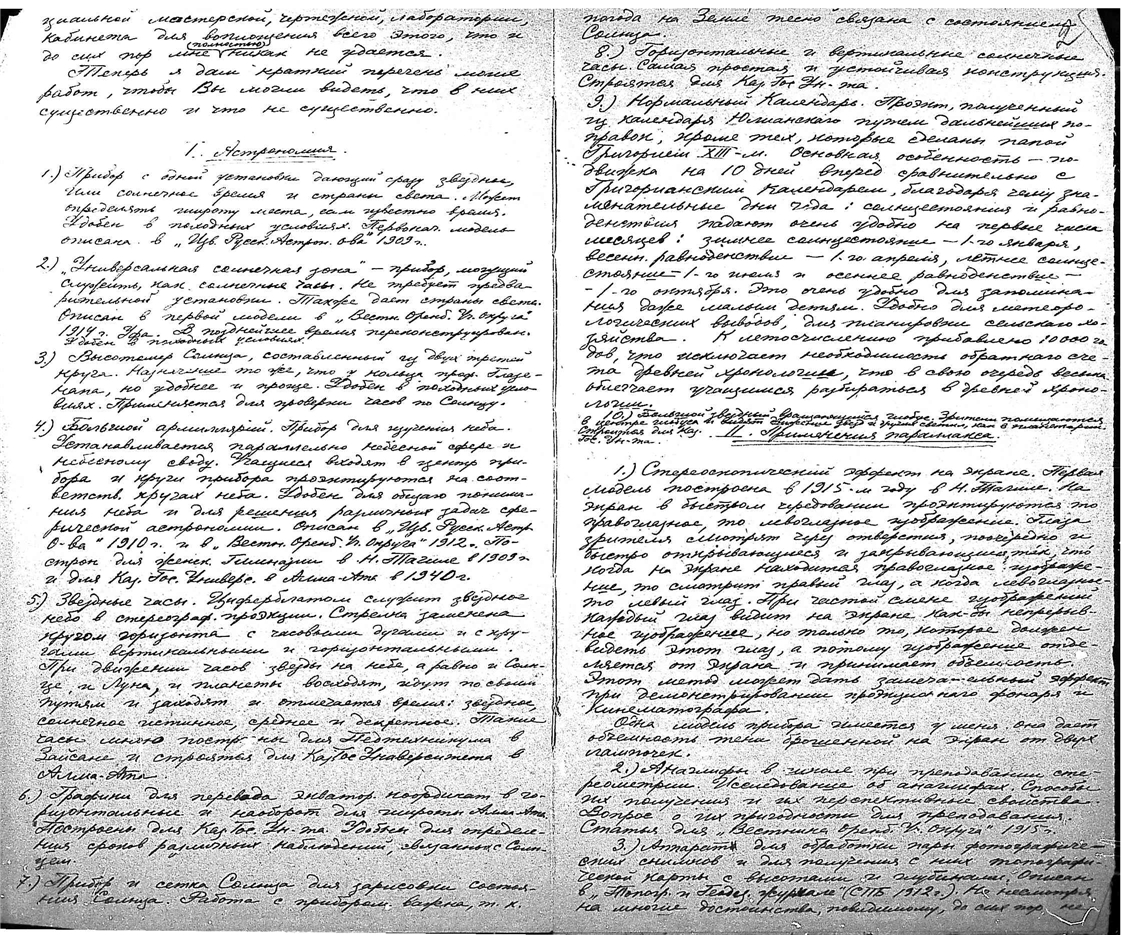 циальной мастерской, чертежной, лаборатории,
кабинета для воплощения всего этого, что и
до сих пор мне (полностью) никак не удается.
Теперь я дам краткий перечень моих
работ, чтобы Вы могли видеть, что в них
существенно и что не существенно.
I. Астрономия.
1.) Прибор с одной установки дающий сразу звездное,
или солнечное время и страны света. Может
определять широту места, если известно время.
Удобен в походных условиях. Первонач. модель
описана в „Изв. Русск. Астрон. о-ва" 1909 г.
2.) „Универсальная солнечная зона" – прибор, могущий
служить, как солнечные часы. Не требует предва-
рительной установки. Также дает страны света.
Описан в первой модели в „Вестн. Оренб. Уч. округа"
1914 г. Уфа. В позднейшее время переконструирован.
Удобен в походных условиях.
3.) Высотомер Солнца, составленный из двух третей
круга. Назначение то же, что у кольца проф. Глазе-
напа, но удобнее и проще. Удобен в походных усло-
виях. Применяется для проверки часов по Солнцу.
4.) Большой армиллярий. Прибор для изучения неба.
Устанавливается параллельно небесной сфере и
небесному своду. Учащиеся входят в центр при-
бора и круги прибора проектируются на соот-
ветств. кругах неба. Удобен для общего понима-
ния неба и для решения различных задач сфе-
рической астрономии. Описан в „Изв. Русск. Астр.
О-ва" 1910 г. и в „Вестн. Оренб. Уч. Округа" 1912 г. По-
строен для женск. Гимназии в Н. Тагиле в 1909 г
и для Каз. Гос. Универс. в Алма-Ата в 1940 г.
5.) Звездные часы. Циферблатом служит звездное
небо в стереограф. проэкции. Стрелка заменена
кругом горизонта с часовыми дугами и с кру-
гами вертикальными и горизонтальными.
При движении часов звезды на небе, а равно и Солн-
це, и Луна, и планеты восходят, идут по своим
путям и заходят и отмечается время: звездное,
солнечное истинное, среднее и декретное. Такие
часы мною постр-ны для Педтехникума в
Зайсане и строятся для КазГос Университета в
Алма-Ата
6.) Графики для перевода экватор. координат в го-
ризонтальные и наоборот для широты Алма-Ата.
Построены для Каз Гос. Ун-та. Удобны для определе-
ния сроков различных наблюдений, связанных с Солн-
цем.
7.) Прибор и сетка Солнца для зарисовки состоя-
ния Солнца. Работа с прибором важна, т. к.
погода на Земле тесно связана с состоянием
Солнца.
8.) Горизонтальные и вертикальные солнечные
часы. Самая простая и устойчивая конструкция.
Строятся для Каз. Гос. Ун-та.
9.) Нормальный Календарь. Проэкт, полученный
из календаря Юлианского путем дальнейших по-
правок, кроме тех, которые сделаны папой
Григорием XIII-м. Основная особенность – по-
движка на 10 дней вперед сравнительно с
Григорианским календарем, благодаря чему зна-
менательные дни года: солнцестояния и равно-
денствия падают очень удобно на первые числа
месяцев: зимнее солнцестояние – 1-го января,
весенн. равноденствие – 1-го апреля, летнее солнце-
стояние – 1-го июля и осеннее равноденствие –
– 1-го октября. Это очень удобно для запомина-
ния даже малым детям. Удобно для метеоро-
логических выводов, для планировки сельского хо-
зяйства. К летосчислению прибавлено 10000 го-
дов, что исключает необходимость обратного сче-
та древней хронологии, что в свою очередь весьма
облегчает учащимся разбираться в древней хроно-
логии.
10.) Большой звездный вращающийся глобус. Зрители помещаются
в центре глобуса и видят движение звезд и других светил, как в планетарии.
Строится для Каз.
Гос. Ун-та.
II. Применения параллакса.
1.) Стереоскопический эффект на экране. Первая
модель построена в 1915-м году в Н. Тагиле. На
экран в быстром чередовании проэктируются то
правоглазное, то левоглазное изображение. Глаза
зрителя смотрят через отверстия, поочередно и
быстро открывающиеся и закрывающиеся так, что
когда на экране находится правоглазное изображе-
ние, то смотрит правый глаз, а когда левоглазное
то левый глаз. При частой смене изображений
каждый глаз видит на экране как-бы непрерыв-
ное изображение, но только то, которое должен
видеть этот глаз, а потому изображение отде-
ляется от экрана и принимает объемность.
Этот метод может дать замеча-ельный эффект
при демонстрировании проэкционного фонаря и
кинематографа.
Одна модель прибора имеется у меня. она дает
объемность тени брошенной на экран от двух
лампочек.
2.) Анаглифы в числе при преподавании сте-
реометрии. Исследование об анаглифах. Способы
их получения и их перспективные свойства.
Вопрос о их пригодности для преподавания.
Статья для „Вестника Оренб. Уч. Округа" 1915 г.
3.) Аппарат для обработки пары фотографиче-
ских снимков и для получения с них топографи-
ческой карты с высотами и глубинами. Описан
в „Топогр. и Геодез. журнале" (СПБ 1912 г.). Не несмотря
на многие достоинства, повидимому, до сих пор не